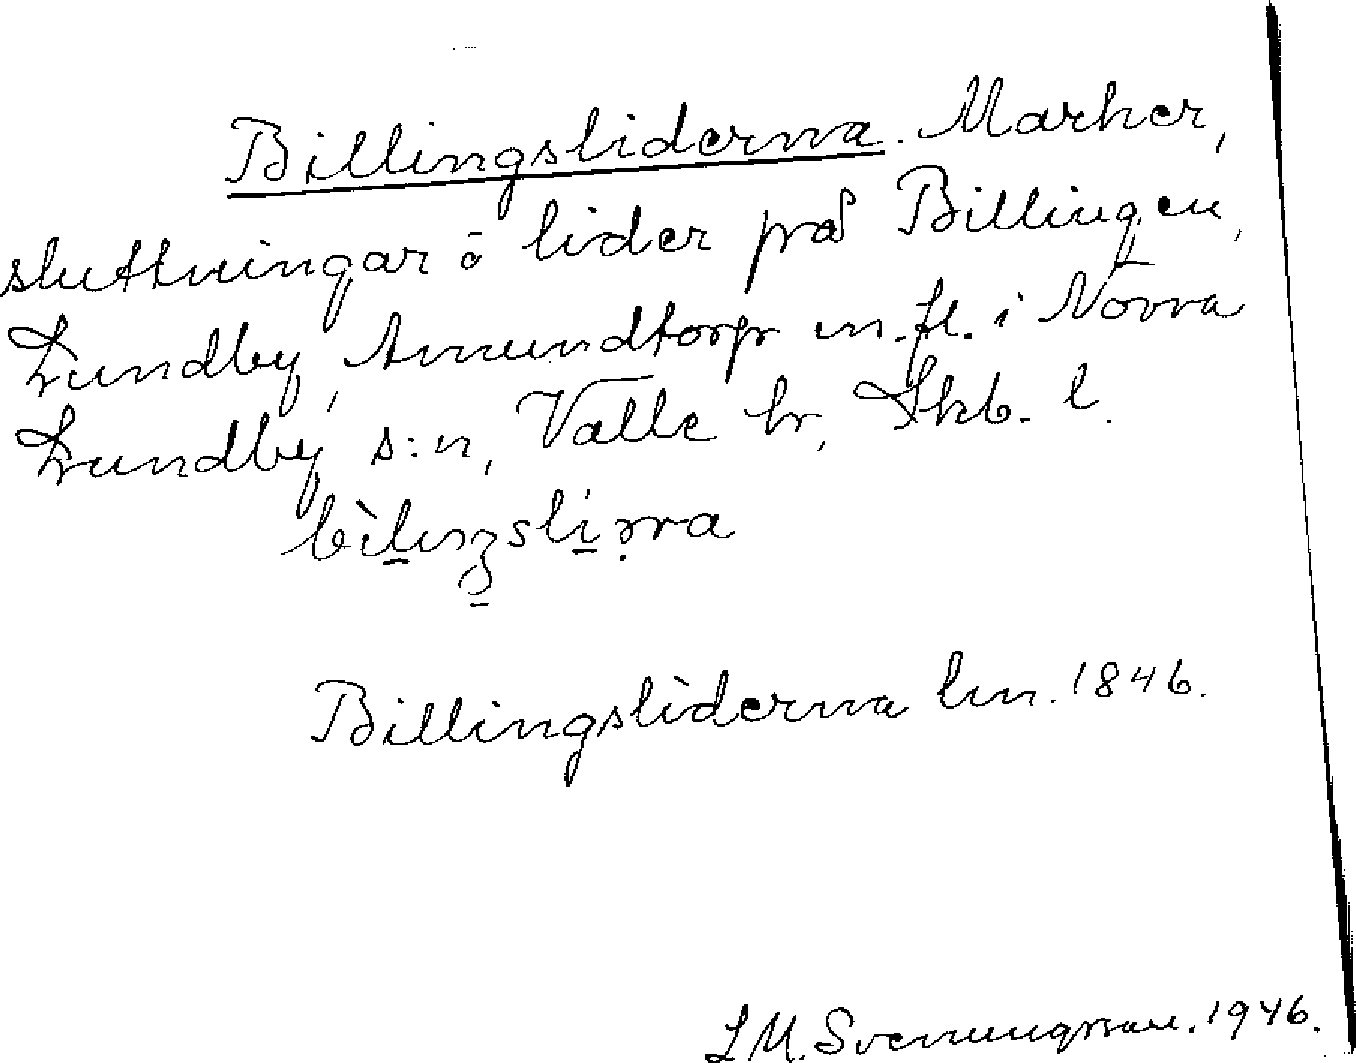 Billingsliderna. Marker,
sluttningar o lider på Billingen,
Lundby, Amundtorp m.fl. i Norra
Lundby s:n, Valle hr, Skb. l.
Billingsliderna lm. 1846.
S.M. Svenungsson. 1946.